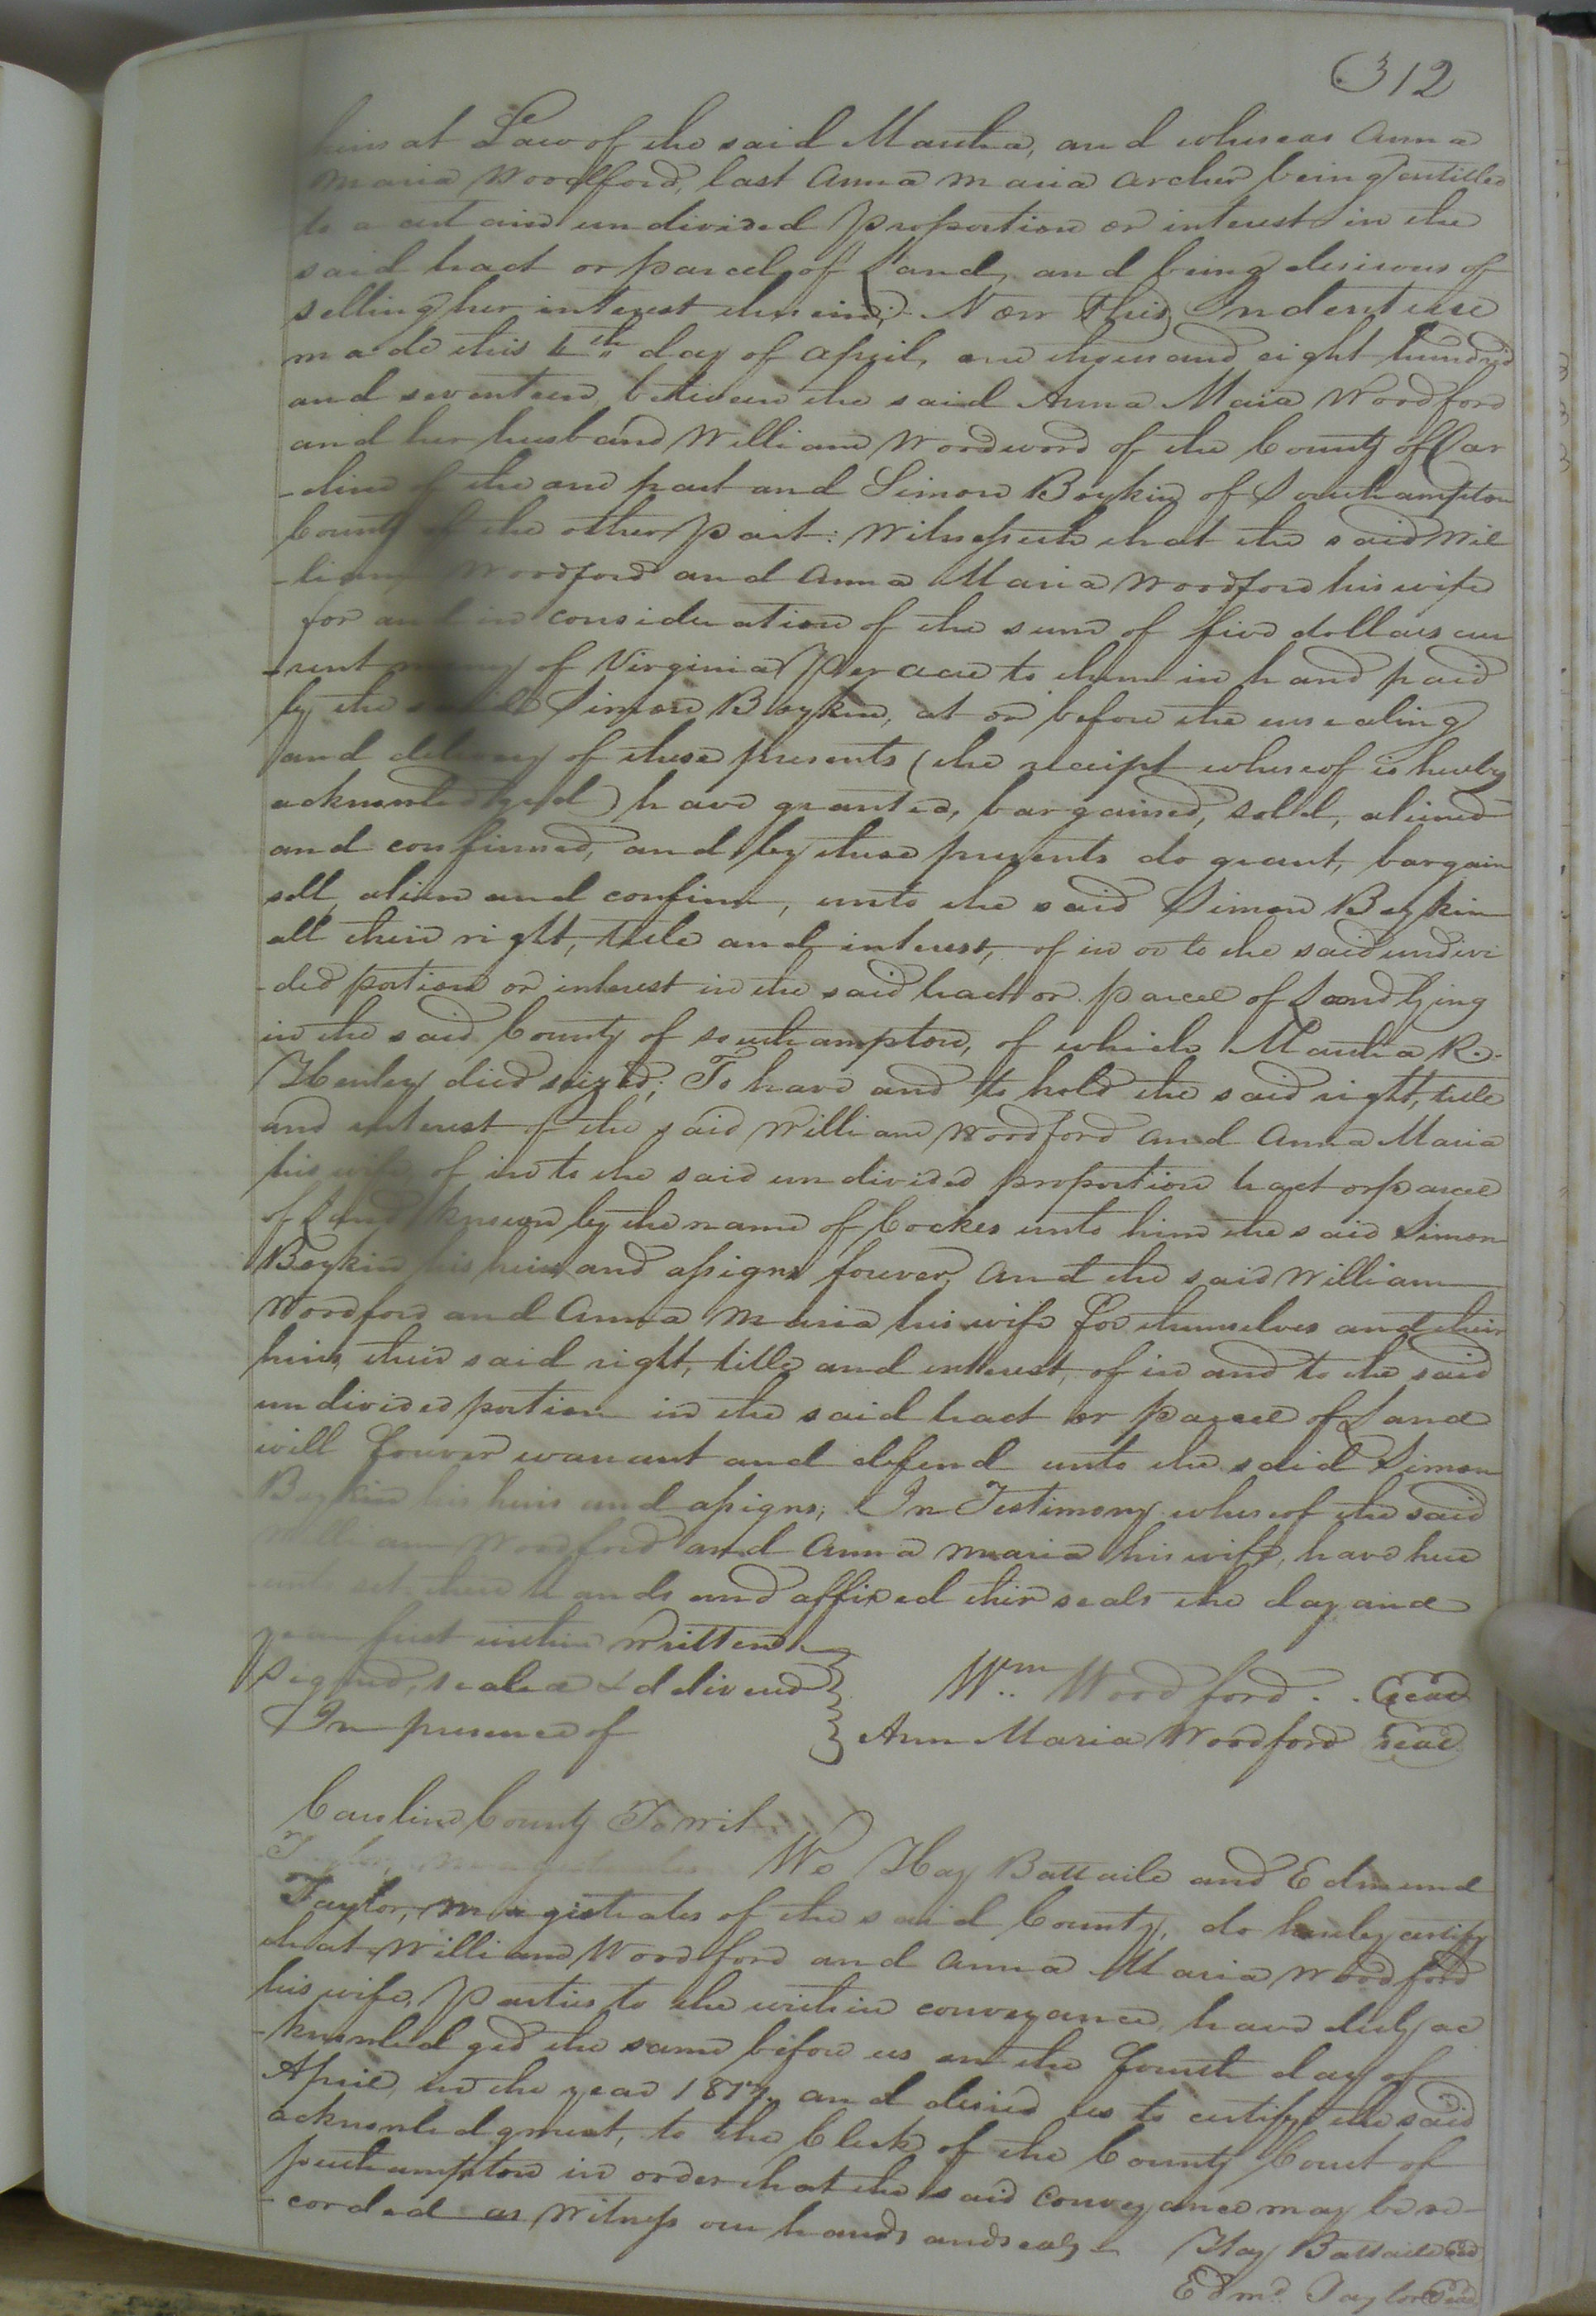 312
heirs at Law of the said Martha, and whereas Anna
Maria Woodford, last Anna Maria Archer being entitled
to a certain undivided proportion or interest in the
said tract or parcel of Land, and being desirous of
selling her interest therein; Now This Indenture
made this 4th day of April, one thousand eight hundred
and seventeen, between the said Anna Maria Woodford
and her husband William Wordword of the County of Car
-oline of the one part and Simon Boykin of Southampton
County of the other part: Witnesseth that the said Wil
-liam Woodford and Anna Maria Woodford his wife
for and in consideration of the sum of five dollars cur
-rent money of Virginia per acre to them in hand paid
by the said Simon Boykin, at or before the ensealing
and delivery of these presents (the receipt whereof is hereby
acknowledged) have granted, bargained, sold, aliened
and confirmed, and by these presents do grant, bargain
sell, alien and confirm, unto the said Simon Boykin
all their right, title and interest, of in or to the said undivi
-ded portion or interest in the said tract or parcel of Land lying
in the said County of Southampton, of which Martha R.
Henley died seized; To have and to hold the said right, title
and interest of the said William Woodford and Anna Maria
his wife of in to the said undivided proportion tract or parcel
of Land known by the name of Cockes unto him the said Simon
Boykin his heirs and assigns forever, And the said William
Woodford and Anna Maria his wife for themselves and their
heirs, their said right, title and interest, of in and to the said
undivided portion in the said tract or parcel of Land
will forever warrant and defend unto the said Simon
Boykin his heirs and assigns; In Testimony whereof the said
William Woodford and Anna Maria his wife, have here
-unto set their hands and affixed their seals the day and
year first within written.
Signed, sealed & delivered
In presence of
Wm. Woodford.. Seal
Ann Maria Woodford Seal
Caroline County To wit.
We Hay Battaile and Edmund
Taylor, Magistrates of the said County, do hereby certify
that William Woodford and Anna Maria Woodford
his wife, parties to the within conveyance, have duly ac
-knowledged the same before us on the fourth day of
April, in the year 1817. and desired us to certify the said
acknowledgment, to the Clerk of the County Court of
Southampton in order that the said Conveyance may be re-
-corded as Witness our hands and seals
Hay Battaile Seal
Edmd. Taylor Seal